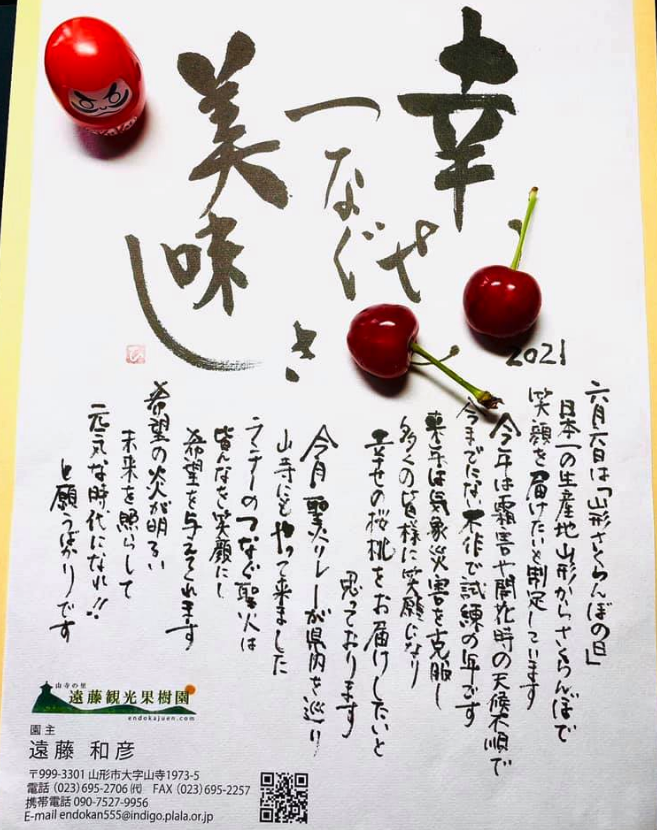 幸せ
つなぐ
美味しき
ひ
2021
六月六日は「山形さくらんぼの日」
日本一の生産地山形からさくらんぼで
笑顔を届けたいと制定しています
今年は霜害や開花時の天候不順で
今までにない不作で試練の年です
来年は気象災害を克服し
多くの皆様に笑顔になり
幸せの桜桃をお届けしたいと
思っております
今月 聖火リレーが県内を巡り
山寺にもやって来ました
ランナーのつなぐ聖火は
皆んなを笑顔にし
希望を与えてくれます
希望の炎が明るい
未来を照らして
元気な時代になれ!!
と願うばかりです
遠藤観光果樹園
endokajuen.com
園主
遠藤 和彦
〒999-3301 山形市大字山寺1973-5
電話 (023)695-2706㈹ FAX (023)695-2257
携帯電話 090-7527-9956
E-mail endokan555@indigo.plala.or.jp